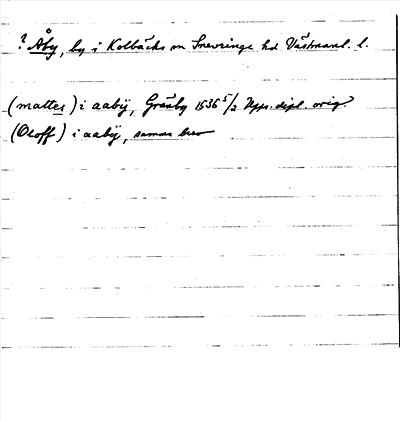 ? Åby, by i Kolbäcks sn Snevringe hd Västmanl. l.
(mattes) i aabÿ, Gråby 1536 5/2 Upps. dipl. orig.
(Oloff) i aabÿ, samma brev